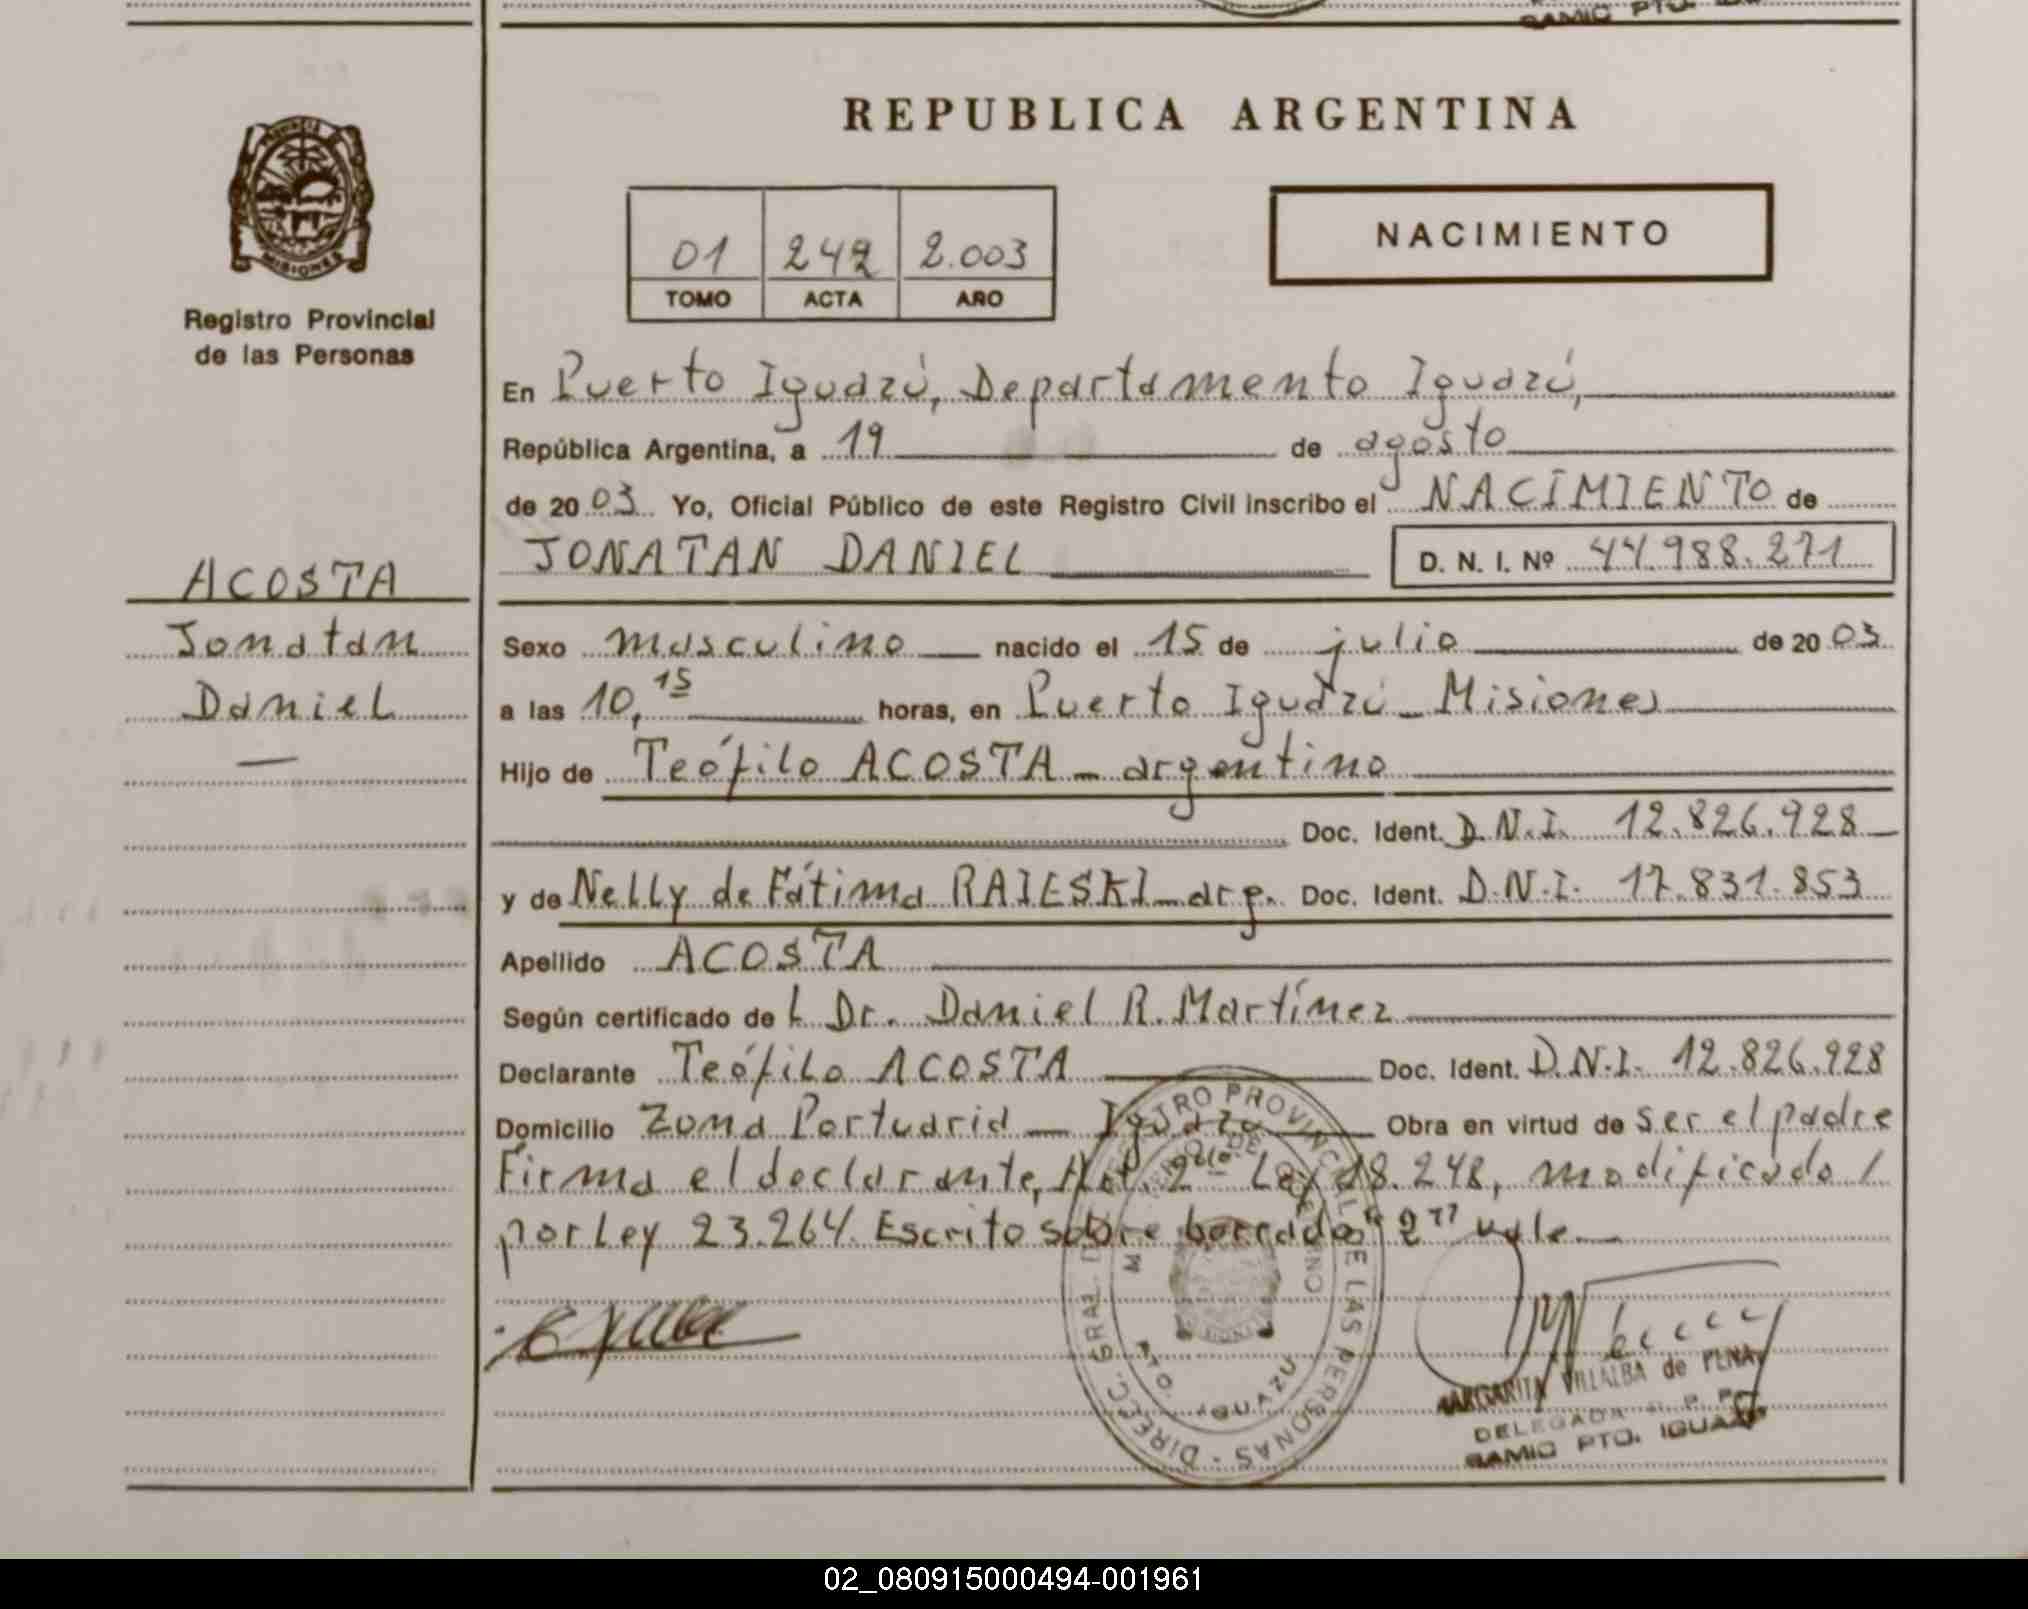 REPUBLICA ARGENTINA
01 242 2.003
TOMO ACTA AÑO
NACIMIENTO
MISIONES
Registro Provincial
de las Personas
ACOSTA
Jonatan
Daniel
En Puerto Iguazú, Departamento Iguazú,
República Argentina, a 19 de agosto
de 2003 Yo, Oficial Público de este Registro Civil inscribo el NACIMIENTO de
JONATAN DANIEL D. N. I. Nº 44.988.271
Sexo masculino nacido el 15 de julio de 2003
a las 10,15 horas, en Puerto Iguazú - Misiones
Hijo de Teófilo ACOSTA - argentino
Doc. Ident. D.N.I. 12.826.928
y de Nelly de Fátima RAIESKI - arg. Doc. Ident. D.N.I. 17.831.853
Apellido ACOSTA
Según certificado de l Dr. Daniel R. Martínez
Declarante Teófilo ACOSTA Doc. Ident. D.N.I. 12.826.928
Domicilio Zona Portuaria - Iguazú Obra en virtud de ser el padre
Firma el declarante, Ley 18.248, modificado /
por Ley 23.264. Escrito sobre borrado "2" vale
DIRECC. GRAL. REGISTRO PROVINCIAL DE LAS PERSONAS
PTO. IGUAZU
MARGARITA VILLALBA de PENA
DELEGADA R. P. P.
SAMIC PTO. IGUAZU
02_080915000494-001961